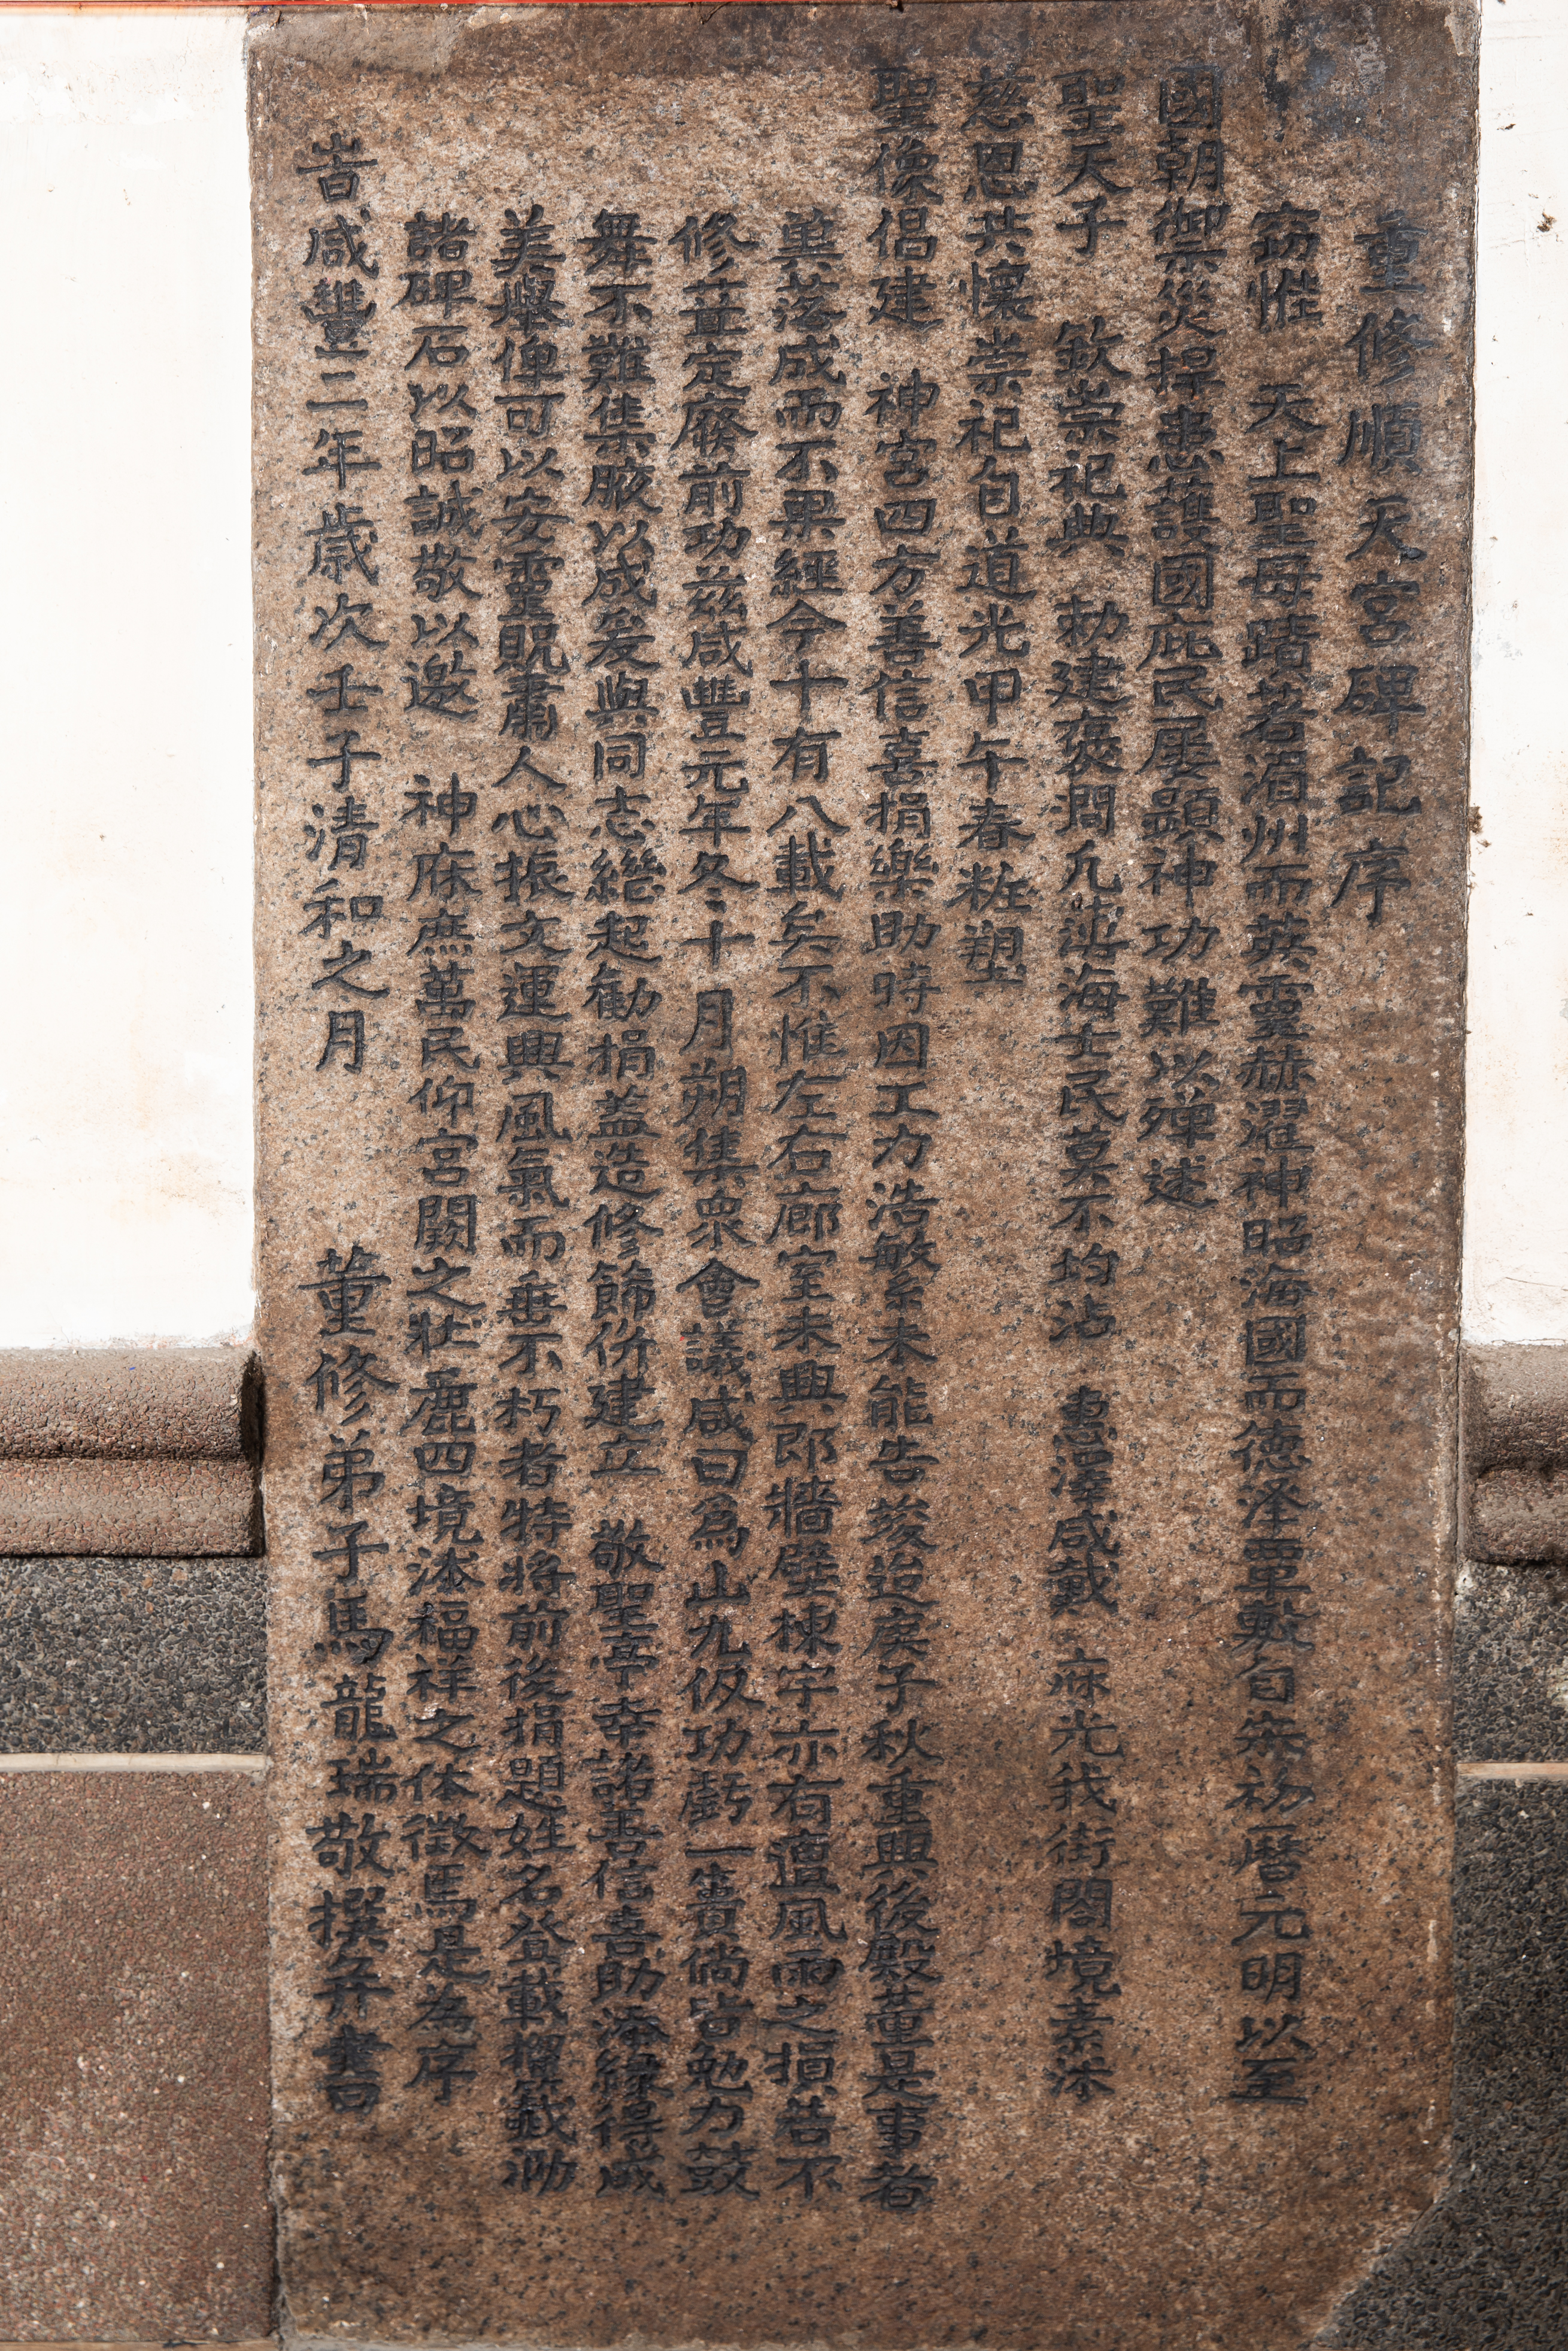 重修順天宮碑記序
窃惟　天上聖母蹟著湄州而英靈赫濯神昭海國而德泽覃敷自宋初曆元明以至
國朝禦災捍患護國庇民屡顕神功難以殫述
聖天子　欽崇祀典　勅建褒閣凢沿海士民莫不均沾　惠澤咸戴　庥光我街闔境素沐
慈恩共懷崇祀自道光甲午春粧塑
聖像倡建　神宮四方善信喜捐樂助時因工力浩敏系未能告竣迨戾子秋重興後殿董是事者
兾落成而不果經今十有八載矣不惟左右廊室未興即牆壁棟宇亦有遭風雨之損若不
修葺定廢前功兹咸豐元年冬十月朔集衆會議咸曰為山九仭功虧一簣倘皆勉力鼓
舞不難集腋以成爰與同志繼起勸捐盖造修篩併建立　敬聖亭幸諸善信喜助海緑得成
美舉俾可以安靈貺肅人心振文運興風氣而垂不朽者特將前後捐題姓名登載櫂籤泐
諸碑石以昭誠敬以邀　神庥庶萬民仰宮闕之壮麗四境沐福祥之休徵焉是為序
旹咸豐二年歲次壬子清和之月　董修弟子馬龍瑞敬撰并書